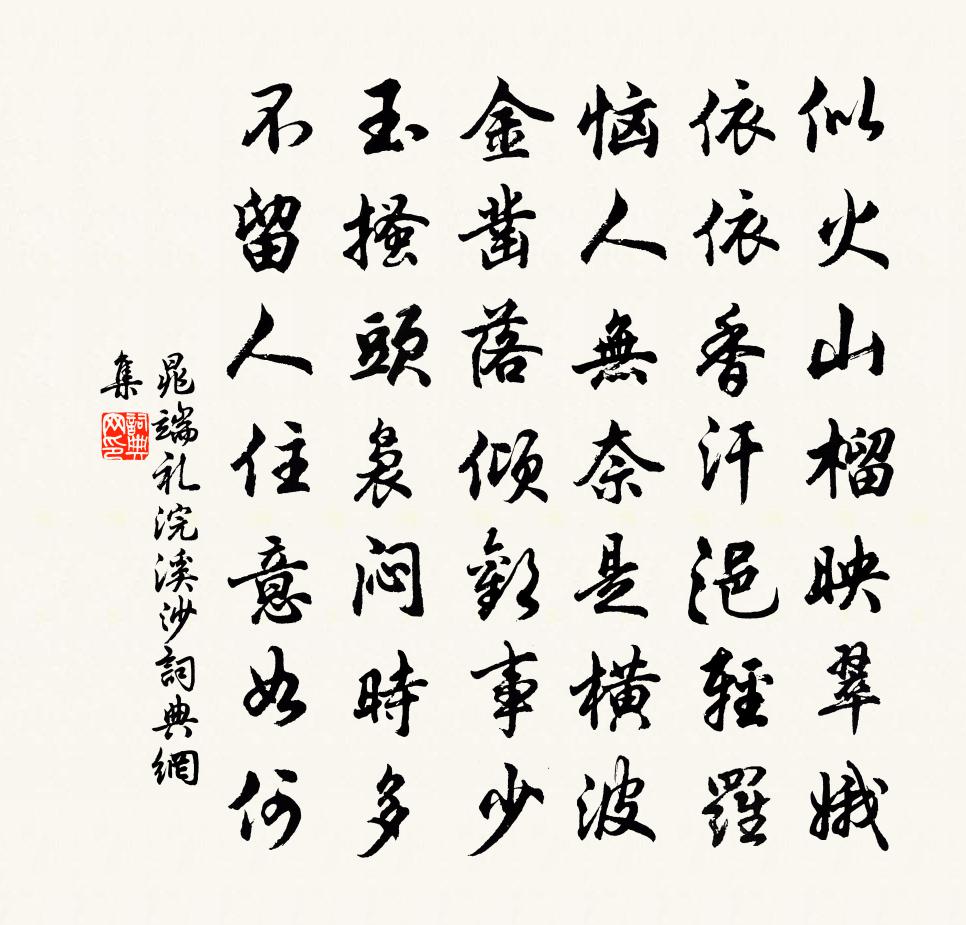 似火山榴映翠娥
依依香汗浥輕羅
惱人無奈是橫波
金鑿落傾歡事少
玉搔頭裊悶時多
不留人住意如何
晁端礼浣溪沙詞典網
集
詞典网印